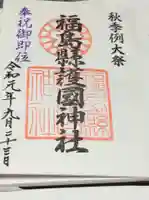 秋季例大祭
福島縣護國神社
奉祝御即位
令和元年九月二十三日